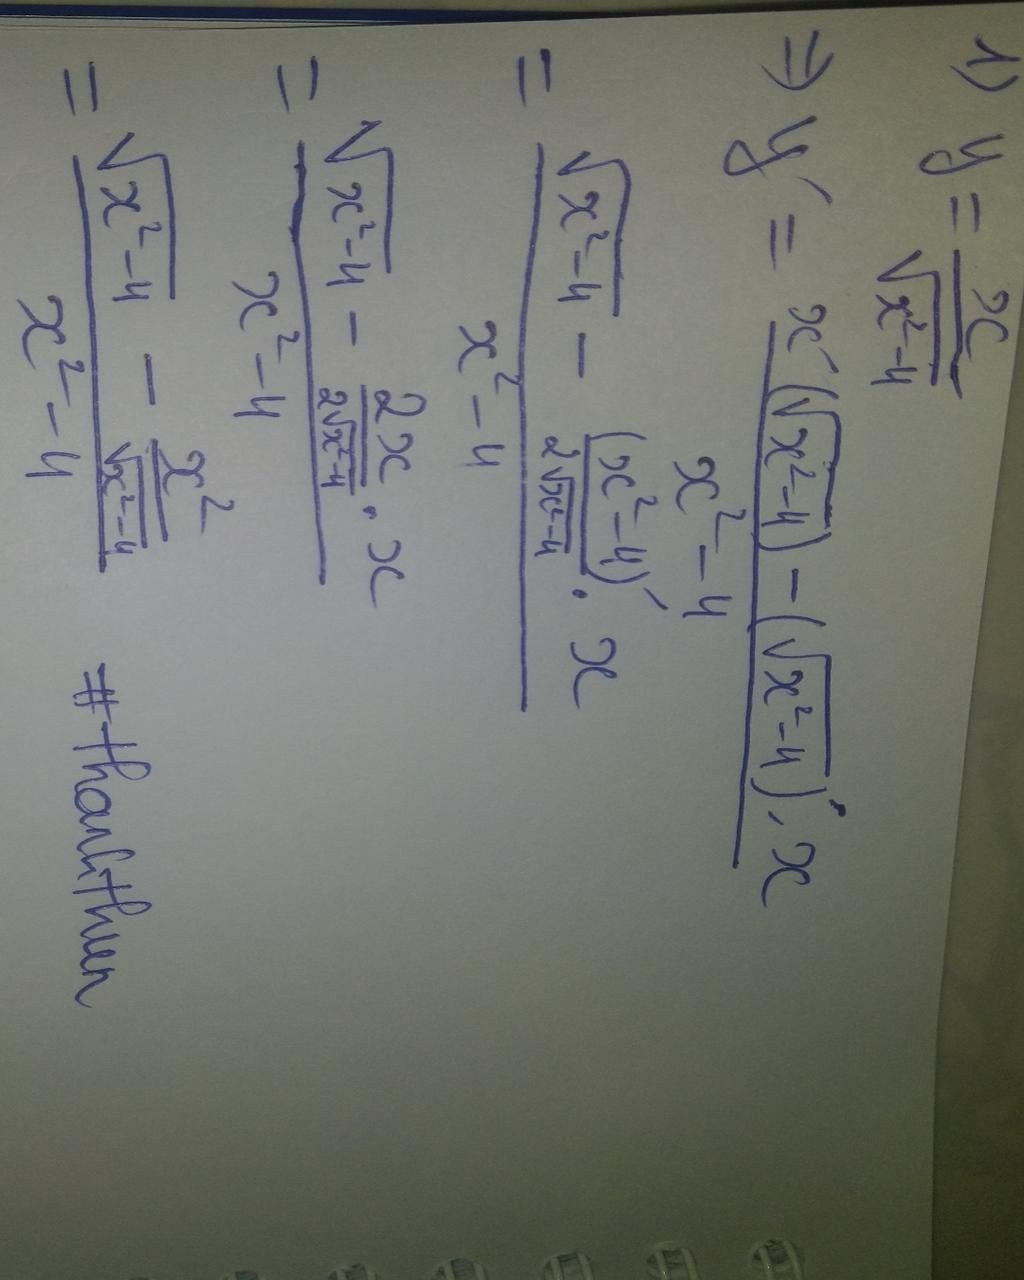 1) y = x / √(x²-4)
⇒ y' = (x'(√(x²-4)) - (√(x²-4))'.x) / (x²-4)
= (√(x²-4) - (x²-4)'/(2√(x²-4)) . x) / (x²-4)
= (√(x²-4) - 2x/(2√(x²-4)) . x) / (x²-4)
= (√(x²-4) - x²/√(x²-4)) / (x²-4)
#thanhthuen